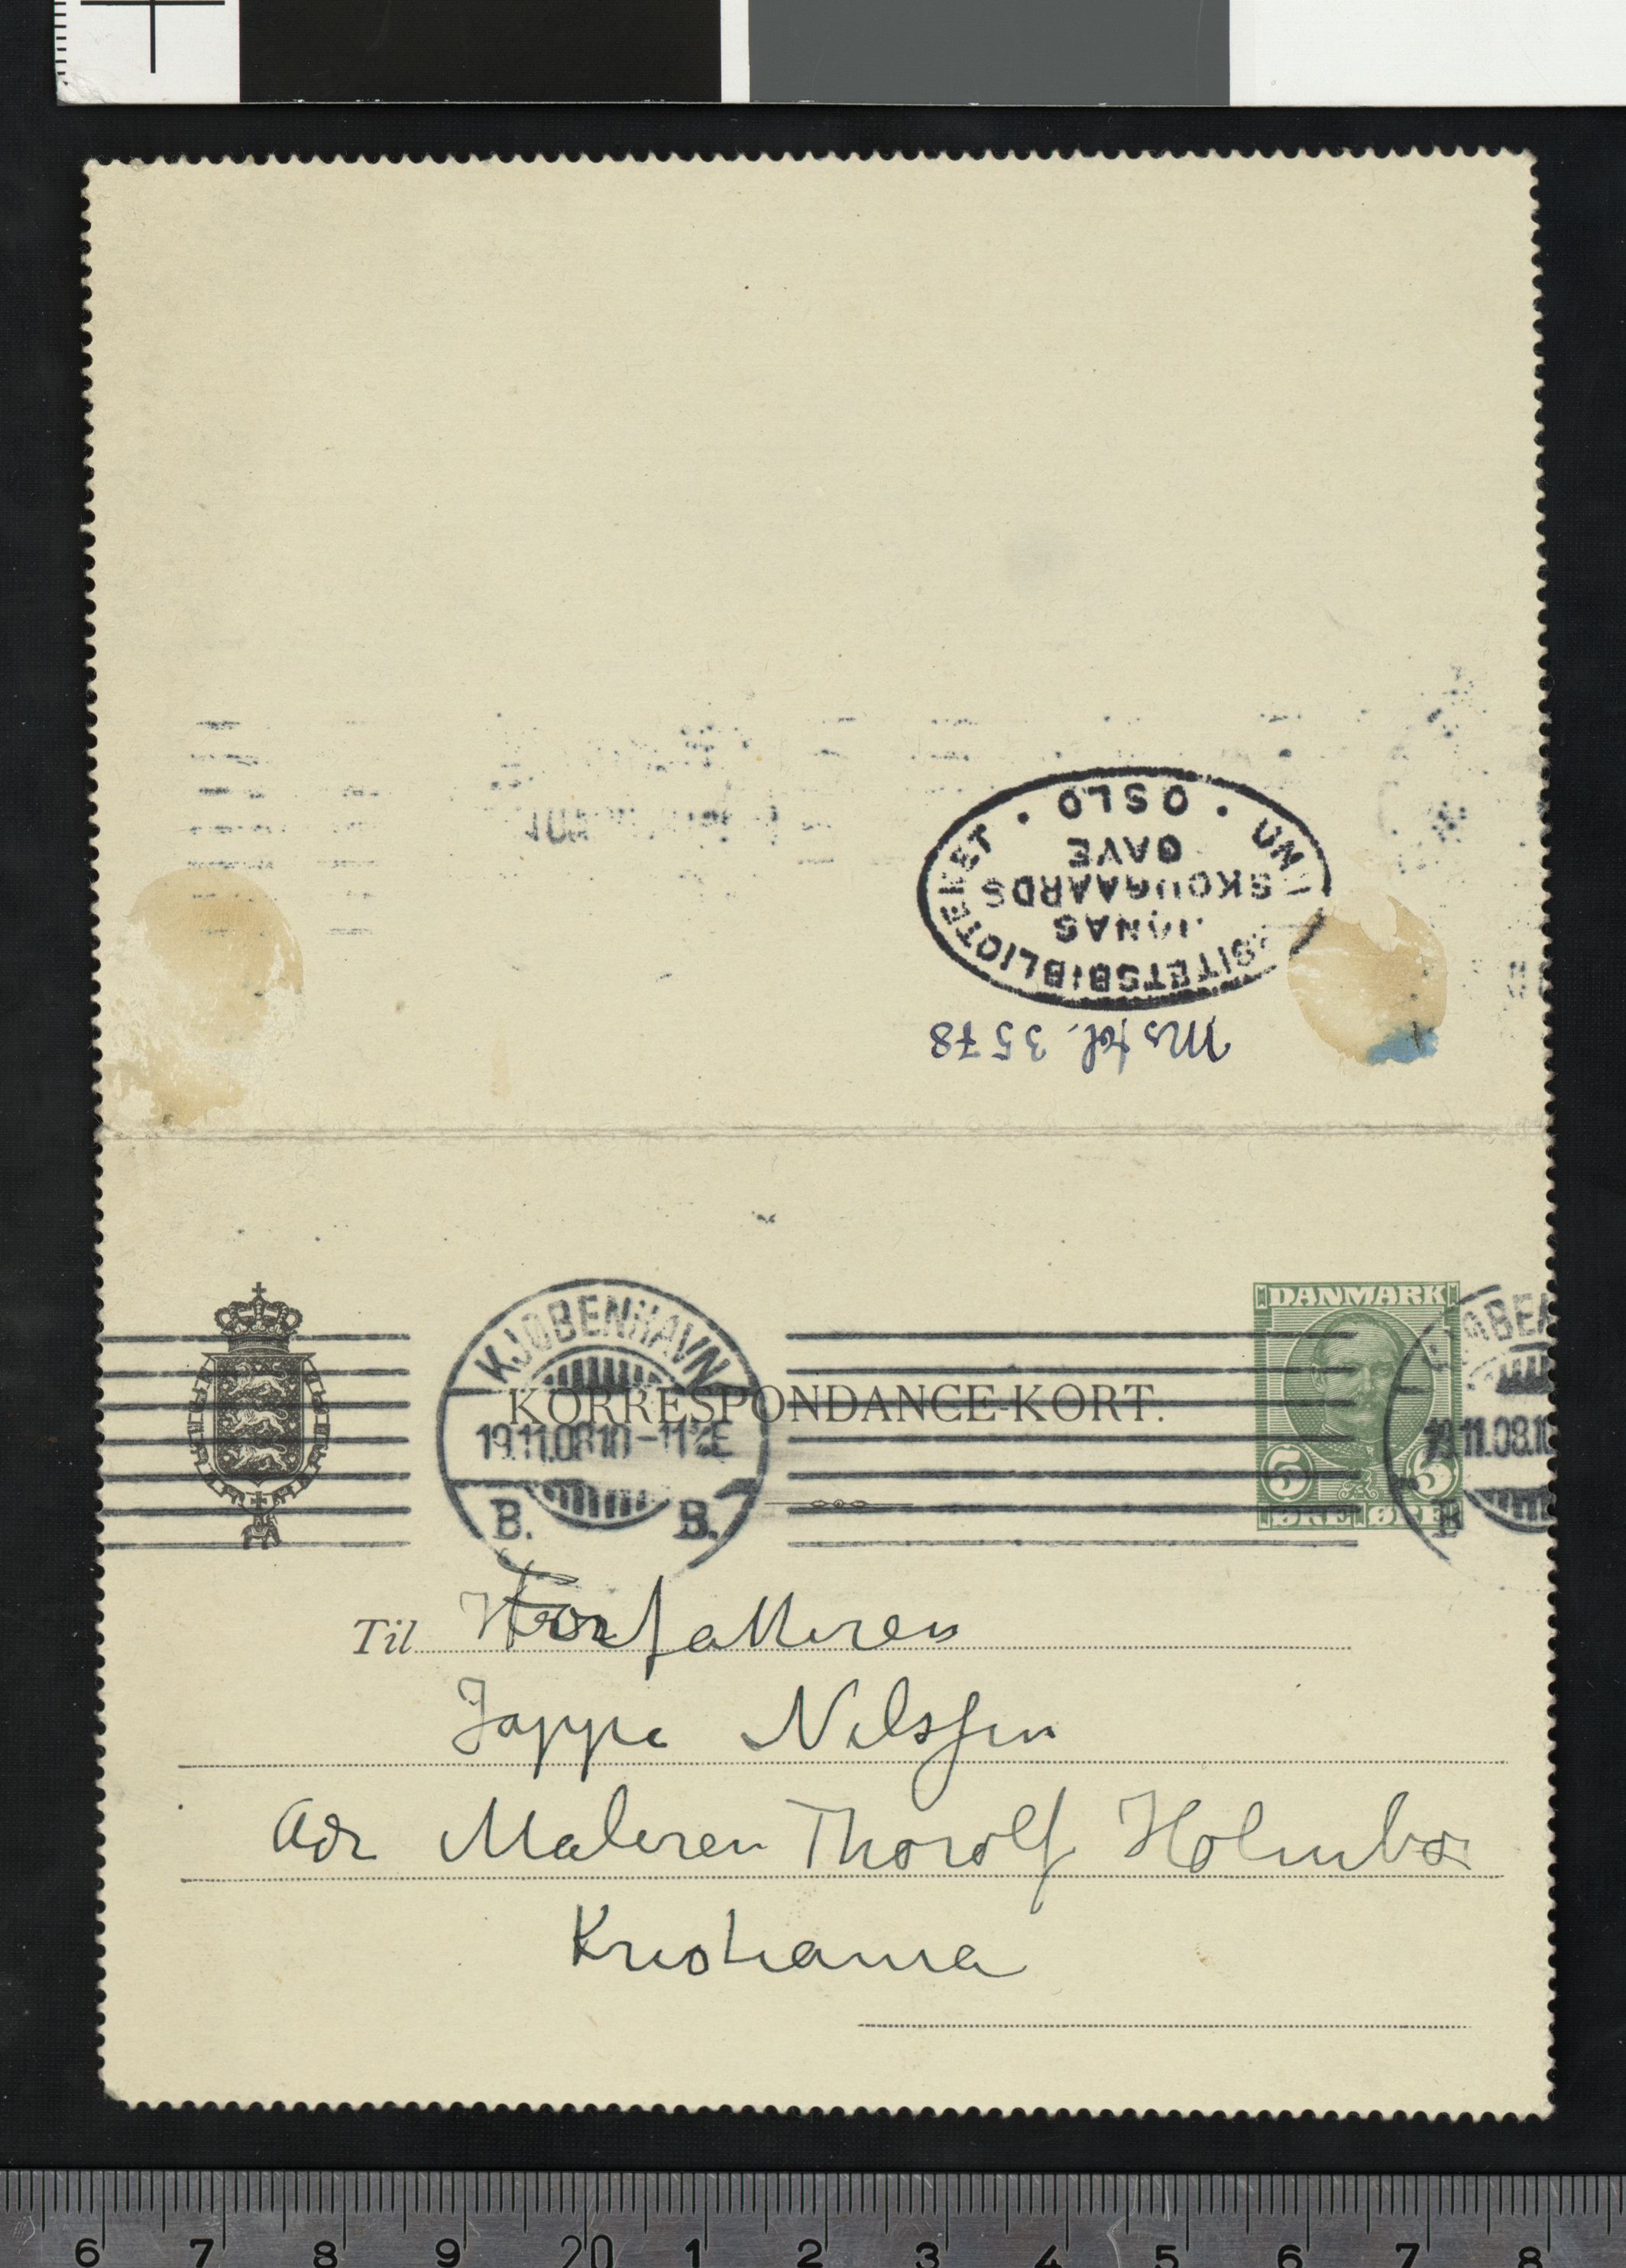 · OSLO ·
UNI SITETSBIBLIOTEKET
JONAS
SKOUGAARDS
GAVE
Ms fol. 3578
DANMARK
5 5
ØRE ØRE
KJØBENHAVN
19.11.08 10-11½E
B. B.
19.11.08.10
B
KORRESPONDANCE-KORT.
Til Forfatteren
Jappe Nilssen
Adr Maleren Thorolf Holmboe
Kristiania
6 7 8 9 20 1 2 3 4 5 6 7 8